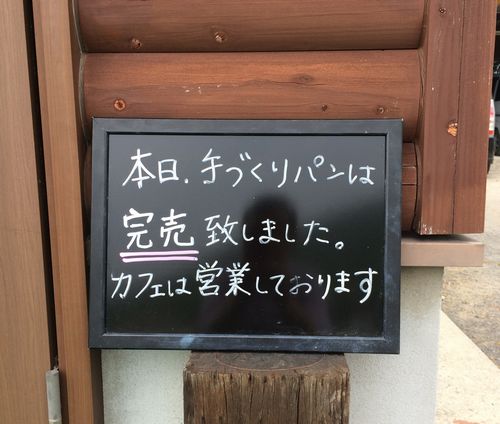 本日、手づくりパンは
完売致しました。
カフェは営業しております